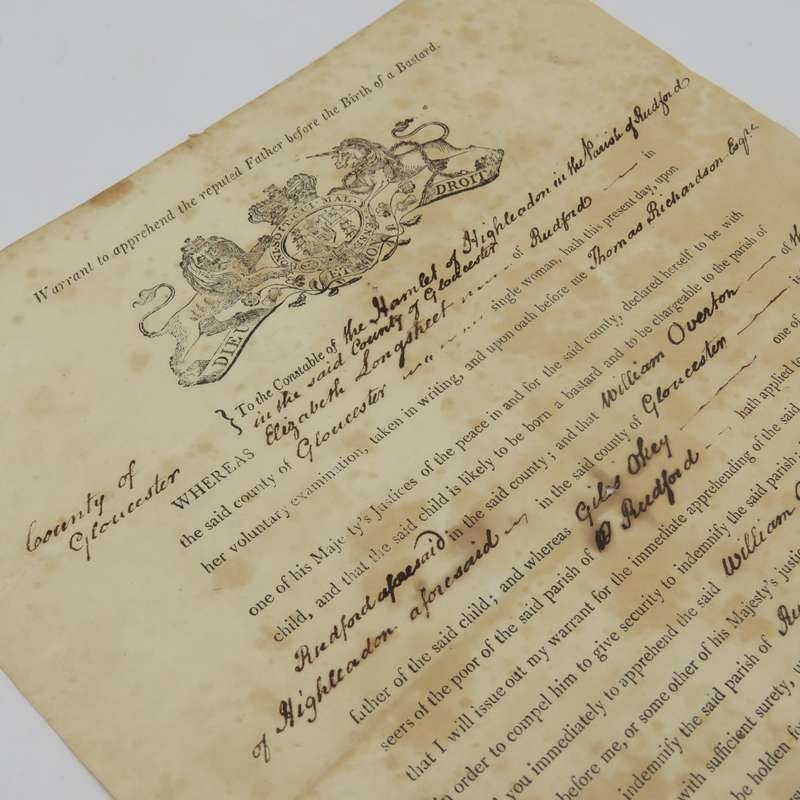 Warrant to apprehend the reputed Father before the Birth of a Bastard.
HONI SOIT QUI MAL Y
DIEU ET MON DROIT
County of
Gloucester
} To the Constable of the Hamlet of Highleadon in the Parish of Rudford
in the said County of Gloucester
WHEREAS Elizabeth Longstreet of Rudford in
the said county of Gloucester single woman, hath this present day, upon
her voluntary examination, taken in writing, and upon oath before me Thomas Richardson Esqre
one of his Majesty's Justices of the peace in and for the said county, declared herself to be with
child, and that the said child is likely to be born a bastard and to be chargeable to the parish of
Rudford aforesaid in the said county; and that William Overton of
of Highleadon aforesaid in the said county of Gloucester
father of the said child; and whereas Giles Okey one of
seers of the poor of the said parish of Rudford hath applied to
that I will issue out my warrant for the immediate apprehending of the said
in order to compel him to give security to indemnify the said parish:
you immediately to apprehend the said William
before me, or some other of his Majesty's justic
indemnify the said parish of
with sufficient surety,
be holden for